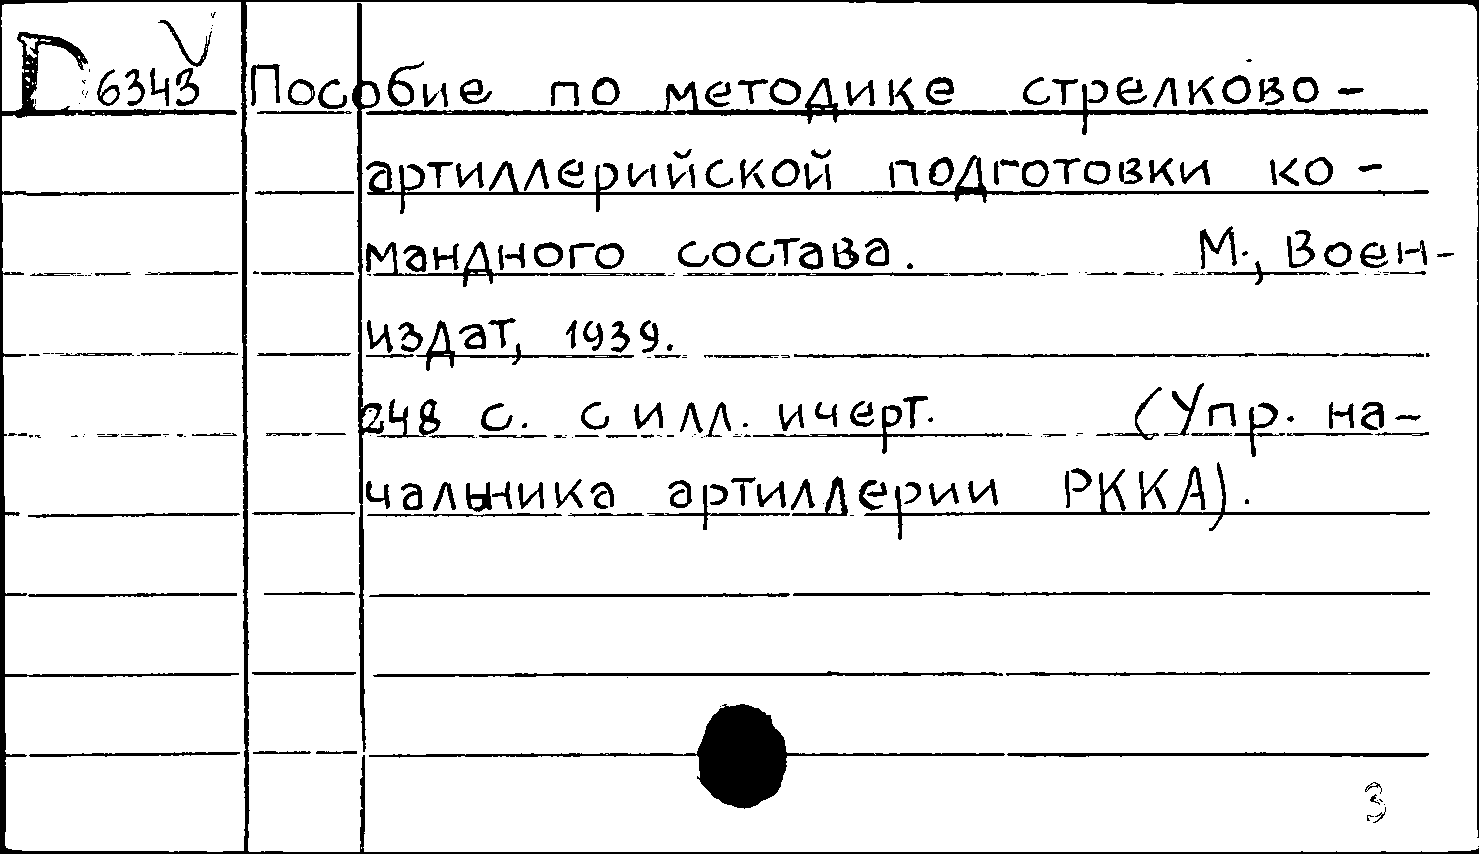 D 6343 Пособие по методике стрелково-
артиллерийской подготовки ко-
мандного состава. М., Воен-
издат, 1939.
248 с. с илл. и черт. (Упр. на-
чальника артиллерии РККА).
3